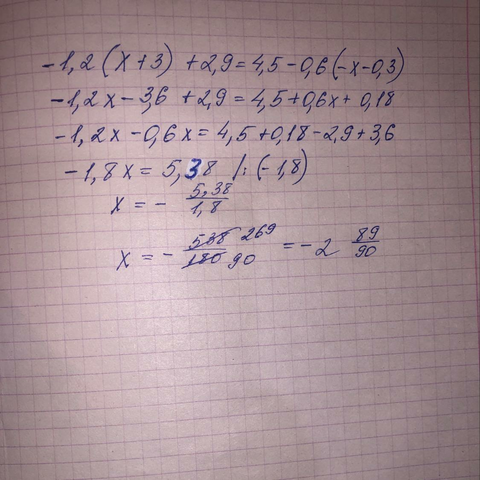 -1,2(x+3) +2,9=4,5-0,6(-x-0,3)
-1,2x-3,6 +2,9=4,5+0,6x+0,18
-1,2x-0,6x=4,5+0,18-2,9+3,6
-1,8x=5,38 /:(-1,8)
x=- 5,38/1,8
x=- 538/180 269/90 =-2 89/90